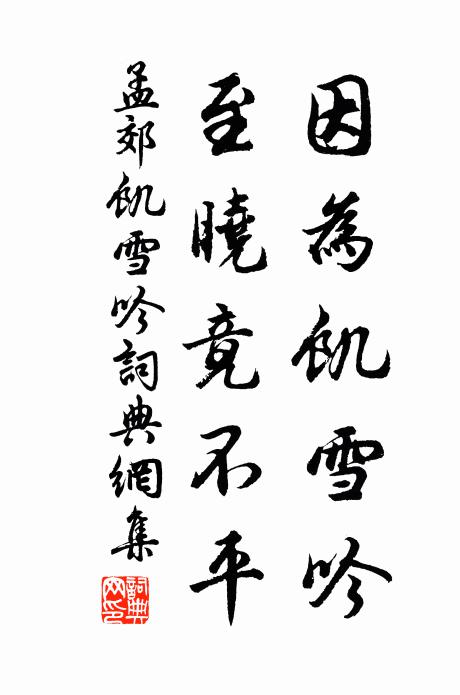 因為飢雪吟
至曉竟不平
孟郊飢雪吟詞典網集
詞典網印